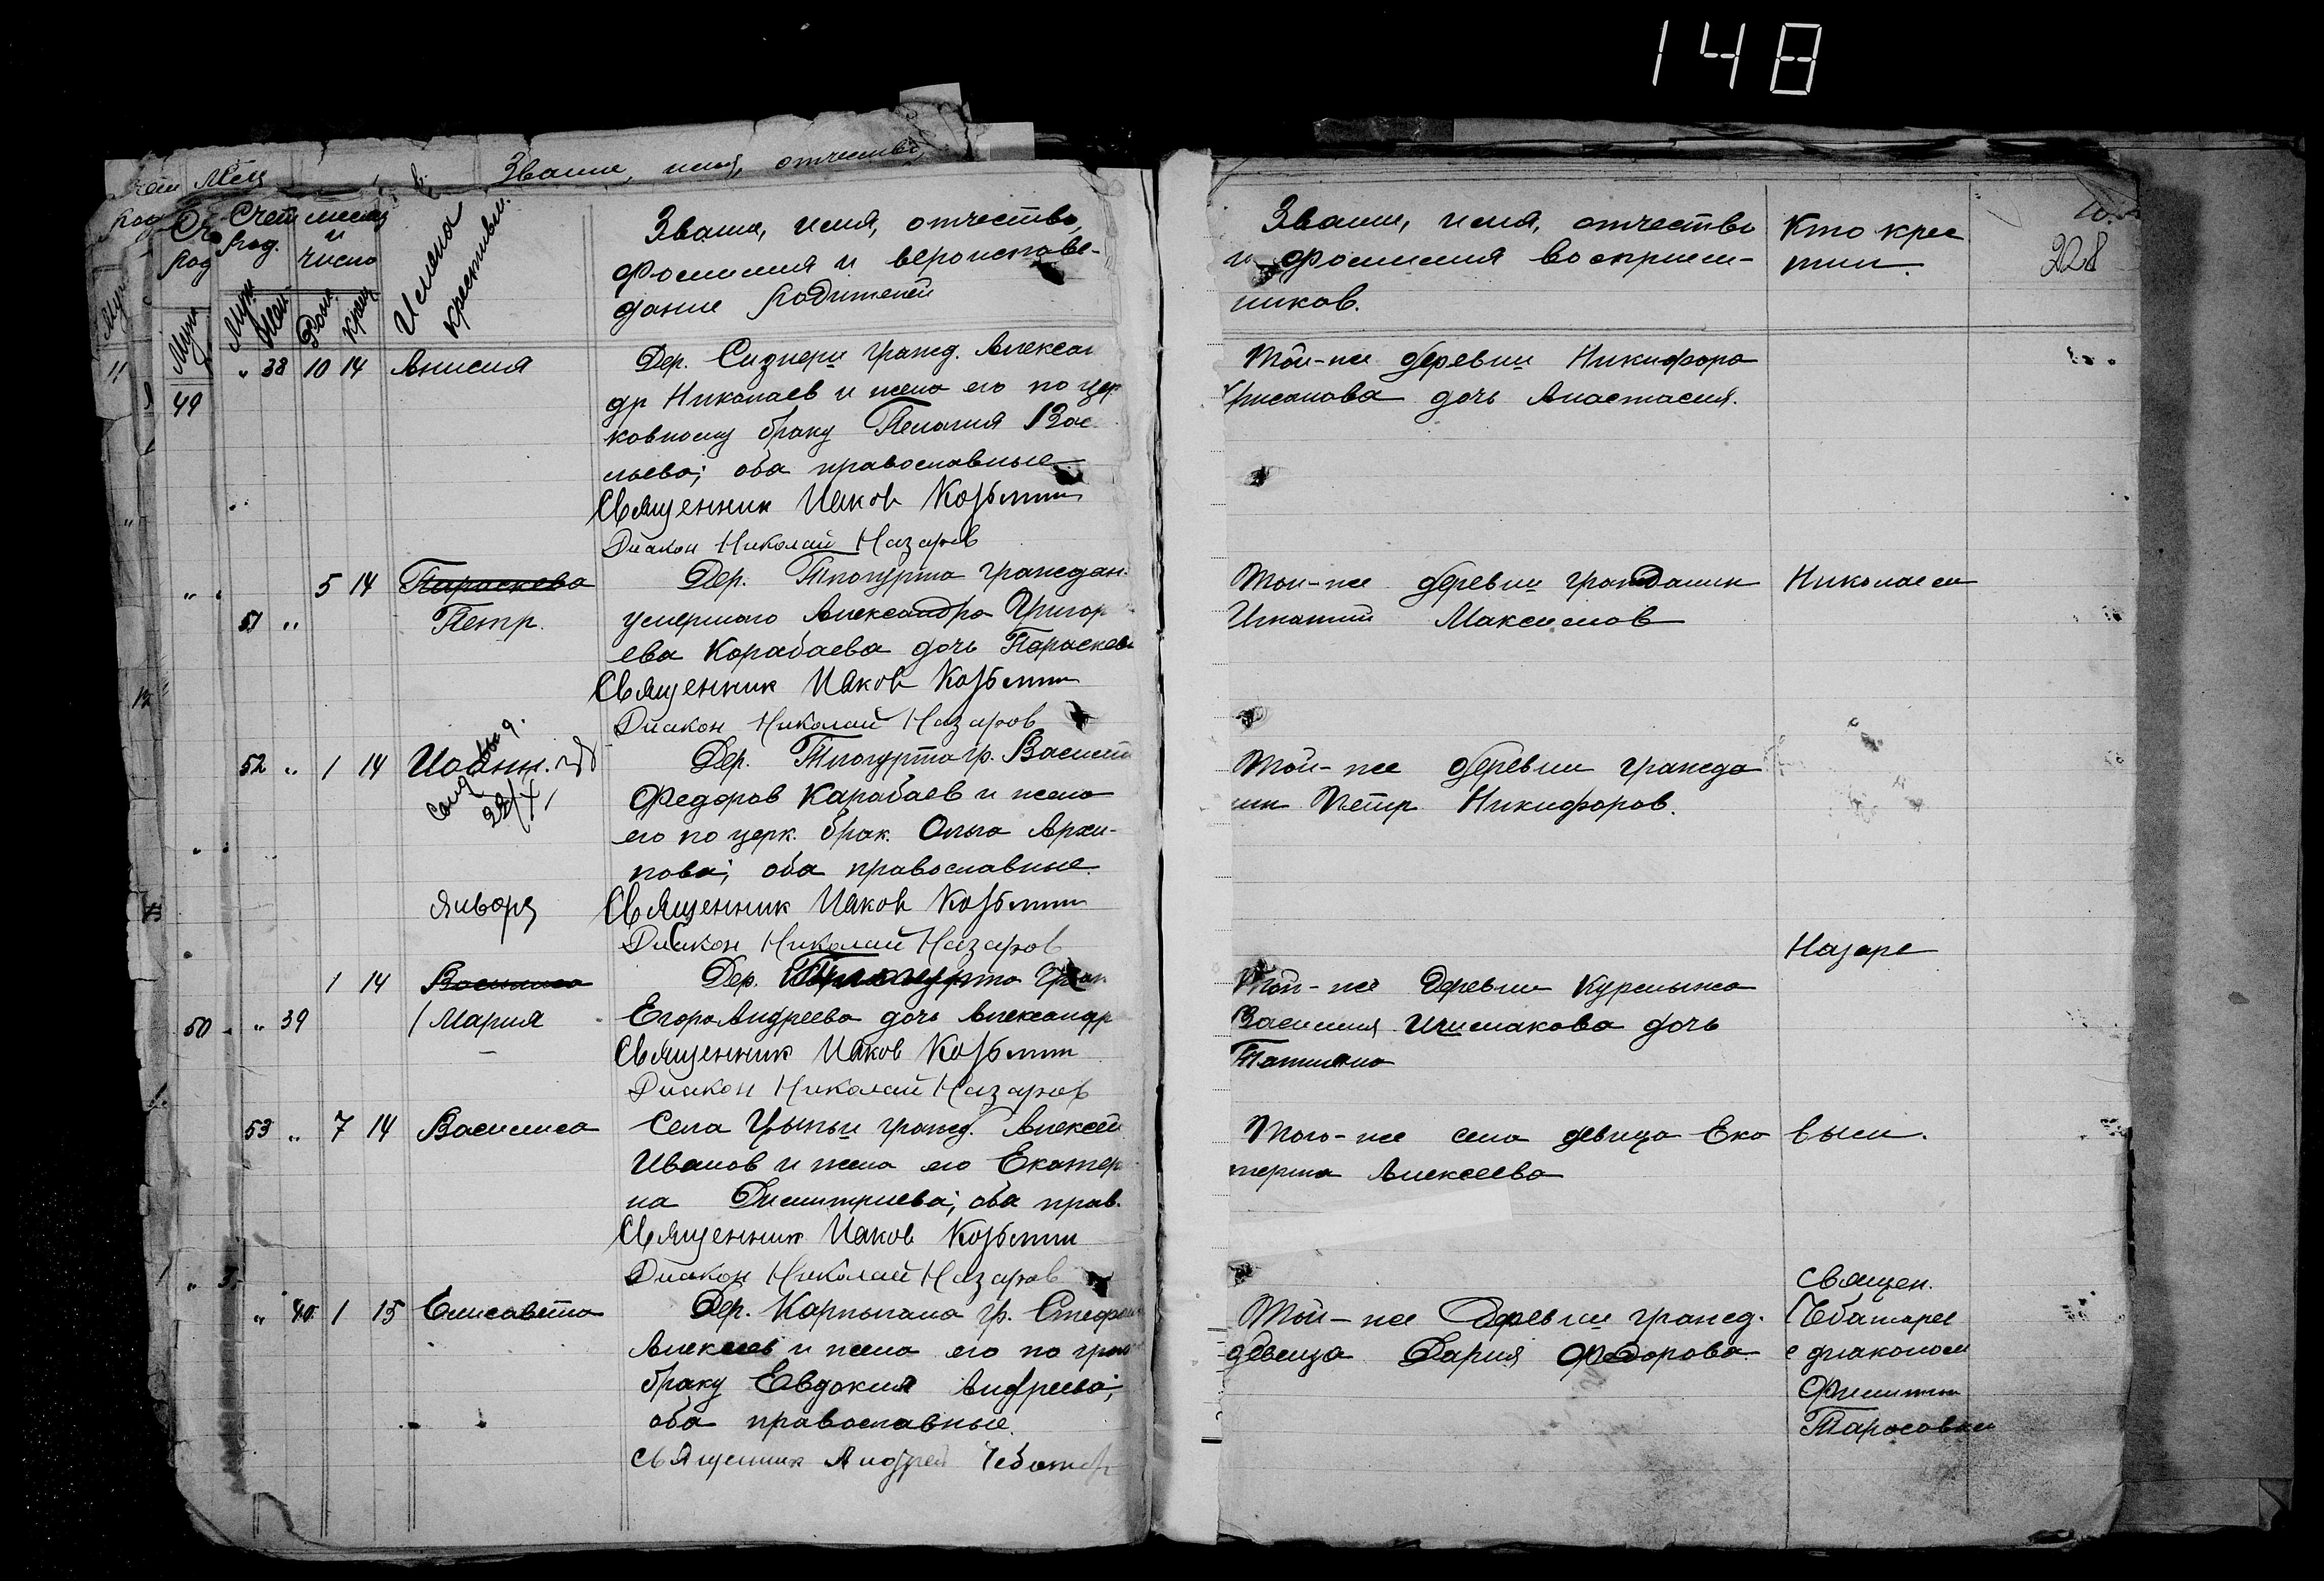 148
Звание, имя, отчество,
Счет
род.
месяц
и
число
Имена
крестивш.
Звание, имя, отчество,
фамилия и вероиспове-
дание родителей
Муж
Жен
Рожд
Крещ
" 38 10 14 Анисия
Дер. Сизнери гражд. Алексан
др Николаев и жена его по цер
ковному браку Пелагия Вас
льева; оба православные
Священник Иаков Козьмин
Диакон Николай Назаров
49
5 14 Параскева
Дер. Тпогурта граждан.
51 " Петр.
умершого Александра Григор
ева Карабаева дочь Параскев
Священник Иаков Козьмин
Диакон Николай Назаров
52 " 1 14 Иоанн.
22/X
Дер. Тпогурта гр. Васили
Федоров Карабаев и жена
его по церк. брак. Ольга Архи-
пова; оба православные.
Января
Священник Иаков Козьмин
Диакон Николай Назаров
1 14 Василиса
Дер.
50 " 39 Мария
Егора Андреева дочь Александр
Священник Иаков Козьмин
Диакон Николай Назаров
53 " 7 14 Василиса
Села Цыпьи гражд. Алексей
Иванов и жена его Екатер
на Димитриева; оба прав.
Священник Иаков Козьмин
Диакон Николай Назаров
" 40 1 15 Елисавета
Дер. Карпыпана гр. Стефан
Алексеев и жена его по
браку Евдокия Андреева;
оба православные.
Священник Андрей Чебатар
Звание, имя, отчество
и фамилия восприем-
ников.
Кто крес
тил.
228
Той-же деревни Никифора
дочь Анастасия.
Той-же деревни гражданин
Игнатий Максимов
Николаем
Той-же деревни гражда
нин Петр Никифоров.
Назаро
Той-же деревни
Василия дочь
Татиана
Того-же села девица Ека
терина Алексеева
вым.
Той-же деревни гражд.
девица Дария Федорова.
Священ.
Чебатарев
с диаконом
Филиппом
Тарасовым